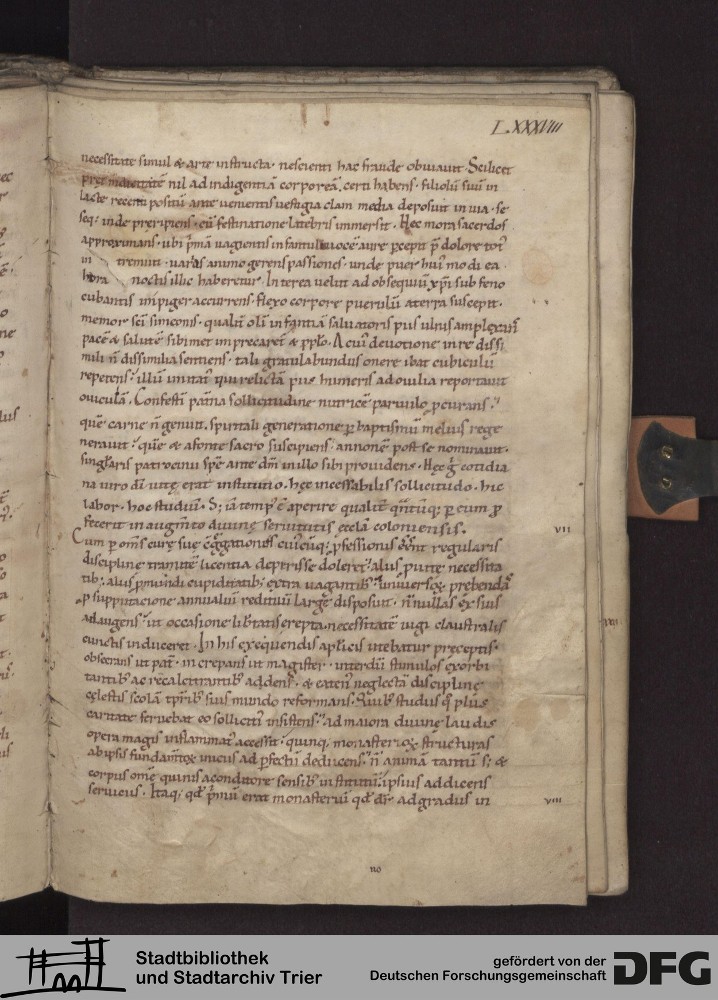 L.XXXVIII
necessitate simul & arte instructa · nescienti hac fraude obviavit · Scilicet
nil ad indigentiā corporeā, certi habens · filiolū suū in
lacte recenti positū ante venientis vestigia clam media deposuit in via · se
seq; inde preripiens · cū festinatione latebris immersit · Hęc mora sacerdos
approximans · ubi p̄mā vagientis infantuli vocē aure pcepit p̄ dolore tot'
in tremuit · varias animo gerens passiones · unde puer hui' modi ea
hora noctis illic haberetur · Interea velut ad obsequiū xp̄i sub feno
cubantis impiger accurrens · flexo corpore puerulū a terra suscepit ·
memor sc̄i simeonis · qualit' olī infantiā salvatoris pus ulnis amplexat'
pacē & salutē sibimet imprecaret' & pplo · A cui' devotione in re dissi
mili n̄ dissimilia sentiens · tali gratulabundus onere ibat cubiculū
repetens · illiū imitat' qui relictā pius humeris ad ovilia reportavit
oviculā · Confestī patña sollicitudine nutricē parvulo p̄curans ·
quē carne n̄ genuit · spiritali generatione p baptismū melius rege
neravit · quē & a fonte sacro suscipiens · annonē post se nominavit ·
singłaris patrocinii spē ante dm̄ in illo sibi providens · Hęc g̊ cotidia
na viro dī vitę erat institutio · hęc incessabilis sollicitudo · hic
labor · hoc studiū · S; iā temp' ē aperire qualit' q̄ntūq; p eum p
fecerit in augm̄to divinę servitutis ęccła coloniensis ·
VII
Cum p om̄s curę suę c̄g̊gationes cui'cūq; p̄fessionis eēnt regularis
disciplinę tramitē licentia deperisse doleret · alius putę necessita
tib; alius p mundi cupiditatib; extra vagantib; universoꝝ prebendā
p supputacione annualiū redituū large disposuit · n̄nullas ex suis
adaugens · ut occasione lib'tatis erepta · necessitatē iugi claustralis
cunctis induceret · In his exequendis ap'licis utebatur pręceptis ·
obsecrans ut pat' · increpans ut magister · interdū stimulos exorbi
tantib; ac recalcitrantib; addens · & eaten' neglectā disciplinę
cęlestis scolā tp̄rib; suis mundo reformans · Quib; studiis q' plus
caritate fervebat eo sollicit' insistens · ad maiora divinę laudis
opera magis inflammat' accessit · quinq; monasterioꝝ structuras
ab ipsis fundam̄toꝝ iniciis ad p̄fectū deducens · n̄ animā tantū s; &
corpus om̄e quinis a conditore sensib; institutū · ipsius addicens
serviciis · Itaq; qđ p̄mū erat monasteriū qđ dr̄ ad gradus in
VIII
no
Stadtbibliothek
und Stadtarchiv Trier
gefördert von der
Deutschen Forschungsgemeinschaft
DFG